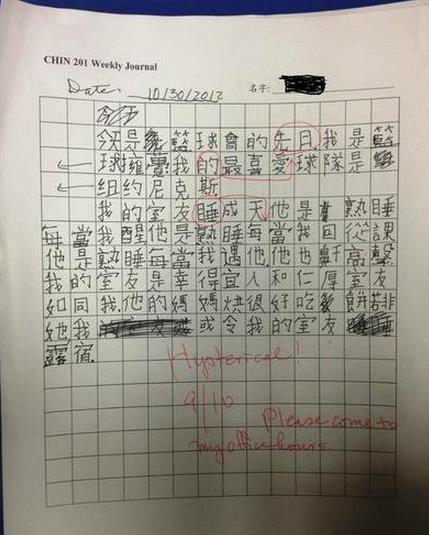 CHIN 201 Weekly Journal
Date: 10/30/2012
名字:
今是籃球會的先日.我是籃
球擁躉我的最喜愛球隊是
纽约尼克斯
我的室友睡成天他是熟睡
每當我醒他是熟睡每當我回從課
他是熟睡每當我遇他他也鼾高聲
我的室友是幸得宜人和仁厚室友
如同我.他的媽媽烘很好吃餅若非
她我或令我的室友
露宿.
Hysterical!
9/10
Please come to
my office hours